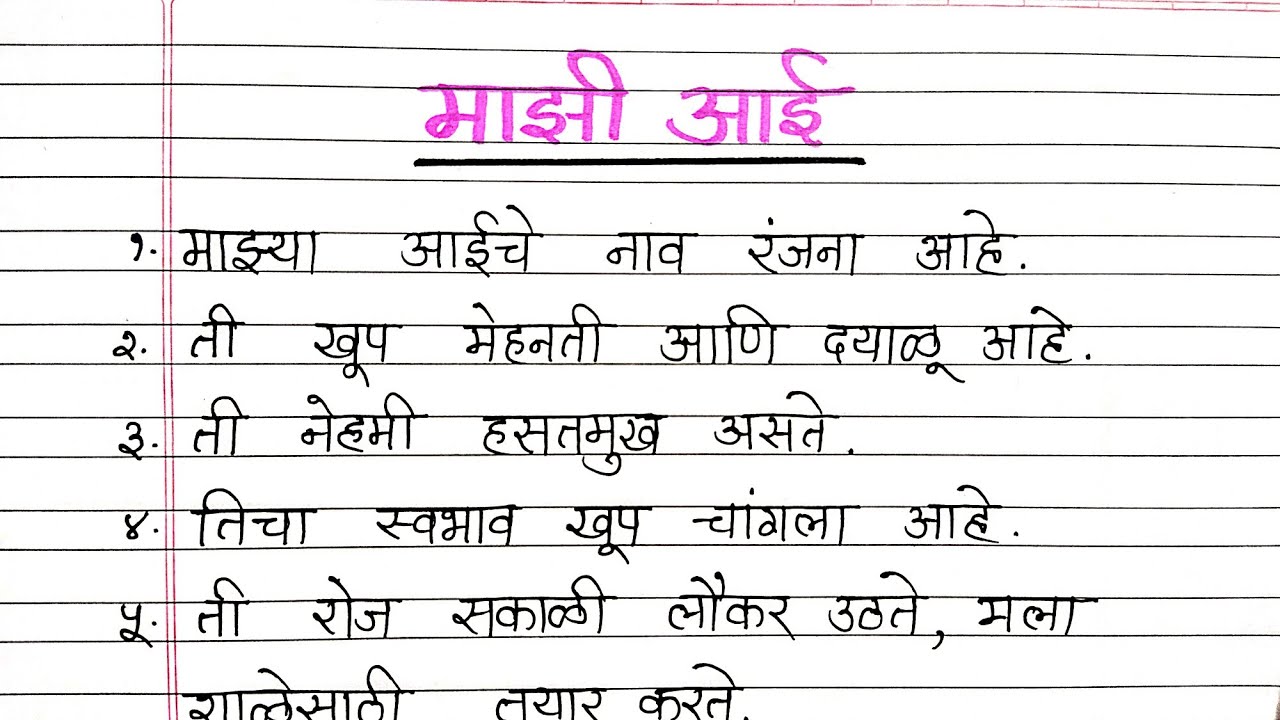 माझी आई
१. माझ्या आईचे नाव रंजना आहे.
२. ती खूप मेहनती आणि दयाळू आहे.
३. ती नेहमी हसतमुख असते.
४. तिचा स्वभाव खूप चांगला आहे.
५. ती रोज सकाळी लौकर उठते, मला
शाळेसाठी तयार करते.